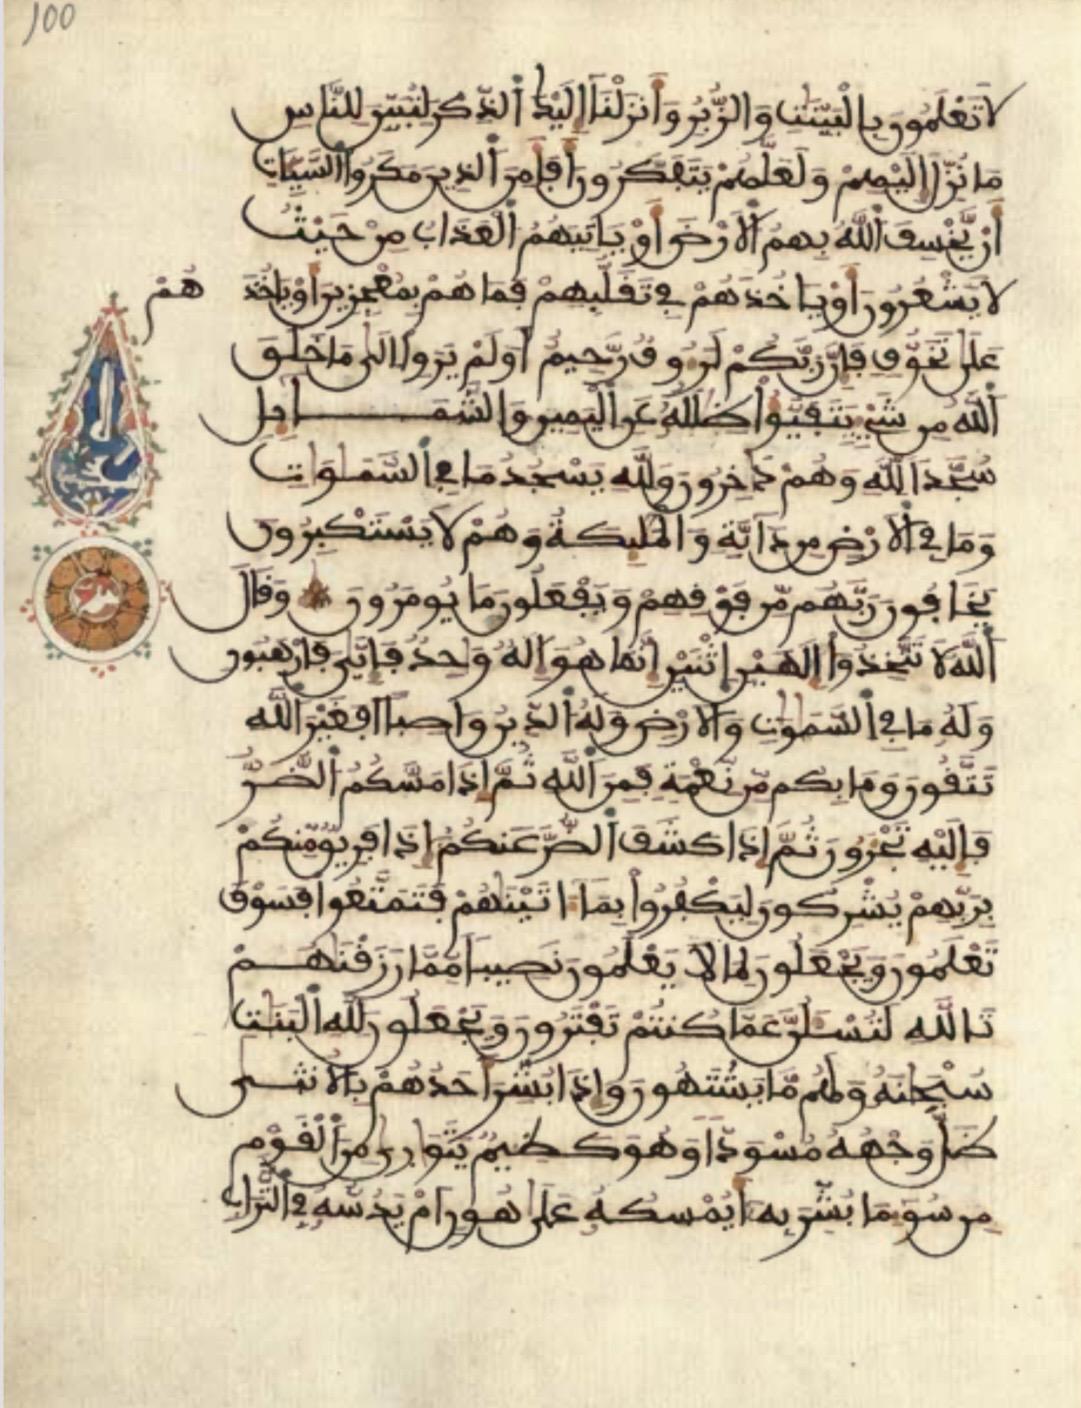 100
لَا تَعْلَمُونَ بِالْبَيِّنَٰتِ وَالزُّبُرِ وَأَنزَلْنَا إِلَيْكَ الذِّكْرَ لِتُبَيِّنَ لِلنَّاسِ
مَا نُزِّلَ إِلَيْهِمْ وَلَعَلَّهُمْ يَتَفَكَّرُونَ أَفَأَمِنَ الَّذِينَ مَكَرُوا السَّيِّـَٔاتِ
أَنْ يَّخْسِفَ اللَّهُ بِهِمُ الْأَرْضَ أَوْ يَاتِيَهُمُ الْعَذَابُ مِنْ حَيْثُ
لَا يَشْعُرُونَ أَوْ يَاخُذَهُمْ فِي تَقَلُّبِهِمْ فَمَا هُمْ بِمُعْجِزِينَ أَوْ يَاخُذَ هُمْ
عَلَىٰ تَخَوُّفٍ فَإِنَّ رَبَّكُمْ لَرَءُوفٌ رَّحِيمٌ أَوَلَمْ يَرَوْا إِلَىٰ مَا خَلَقَ
اللَّهُ مِن شَيْءٍ يَتَفَيَّؤُا ظِلَٰلُهُ عَنِ الْيَمِينِ وَالشَّمَائِلِ
سُجَّدًا لِّلَّهِ وَهُمْ دَٰخِرُونَ وَلِلَّهِ يَسْجُدُ مَا فِي السَّمَٰوَاتِ
وَمَا فِي الْأَرْضِ مِن دَآبَّةٍ وَالْمَلَٰٓئِكَةُ وَهُمْ لَا يَسْتَكْبِرُونَ
يَخَافُونَ رَبَّهُم مِّن فَوْقِهِمْ وَيَفْعَلُونَ مَا يُومَرُونَ وَقَالَ
اللَّهُ لَا تَتَّخِذُوا إِلَٰهَيْنِ اثْنَيْنِ إِنَّمَا هُوَ إِلَٰهٌ وَٰحِدٌ فَإِيَّٰيَ فَارْهَبُونِ
وَلَهُ مَا فِي السَّمَٰوَٰتِ وَالْأَرْضِ وَلَهُ الدِّينُ وَاصِبًا أَفَغَيْرَ اللَّهِ
تَتَّقُونَ وَمَا بِكُم مِّن نِّعْمَةٍ فَمِنَ اللَّهِ ثُمَّ إِذَا مَسَّكُمُ الضُّرُّ
فَإِلَيْهِ تَجْـَٔرُونَ ثُمَّ إِذَا كَشَفَ الضُّرَّ عَنكُمْ إِذَا فَرِيقٌ مِّنكُمْ
بِرَبِّهِمْ يُشْرِكُونَ لِيَكْفُرُوا بِمَا ءَاتَيْنَٰهُمْ فَتَمَتَّعُوا فَسَوْفَ
تَعْلَمُونَ وَيَجْعَلُونَ لِمَا لَا يَعْلَمُونَ نَصِيبًا مِّمَّا رَزَقْنَٰهُمْ
تَاللَّهِ لَتُسْـَٔلُنَّ عَمَّا كُنتُمْ تَفْتَرُونَ وَيَجْعَلُونَ لِلَّهِ الْبَنَٰتِ
سُبْحَٰنَهُ وَلَهُم مَّا يَشْتَهُونَ وَإِذَا بُشِّرَ أَحَدُهُمْ بِالْأُنثَىٰ
ظَلَّ وَجْهُهُ مُسْوَدًّا وَهُوَ كَظِيمٌ يَتَوَٰرَىٰ مِنَ الْقَوْمِ
مِن سُوءِ مَا بُشِّرَ بِهِ أَيُمْسِكُهُ عَلَىٰ هُونٍ أَمْ يَدُسُّهُ فِي التُّرَابِ